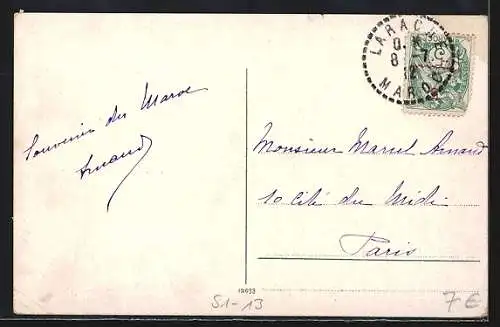 LARACHE
8 - 7
12
MAROC
Souvenir du Maroc
Arnaud
Monsieur Marcel Arnaud
10 Cité du Midi
Paris
S1-13
7€